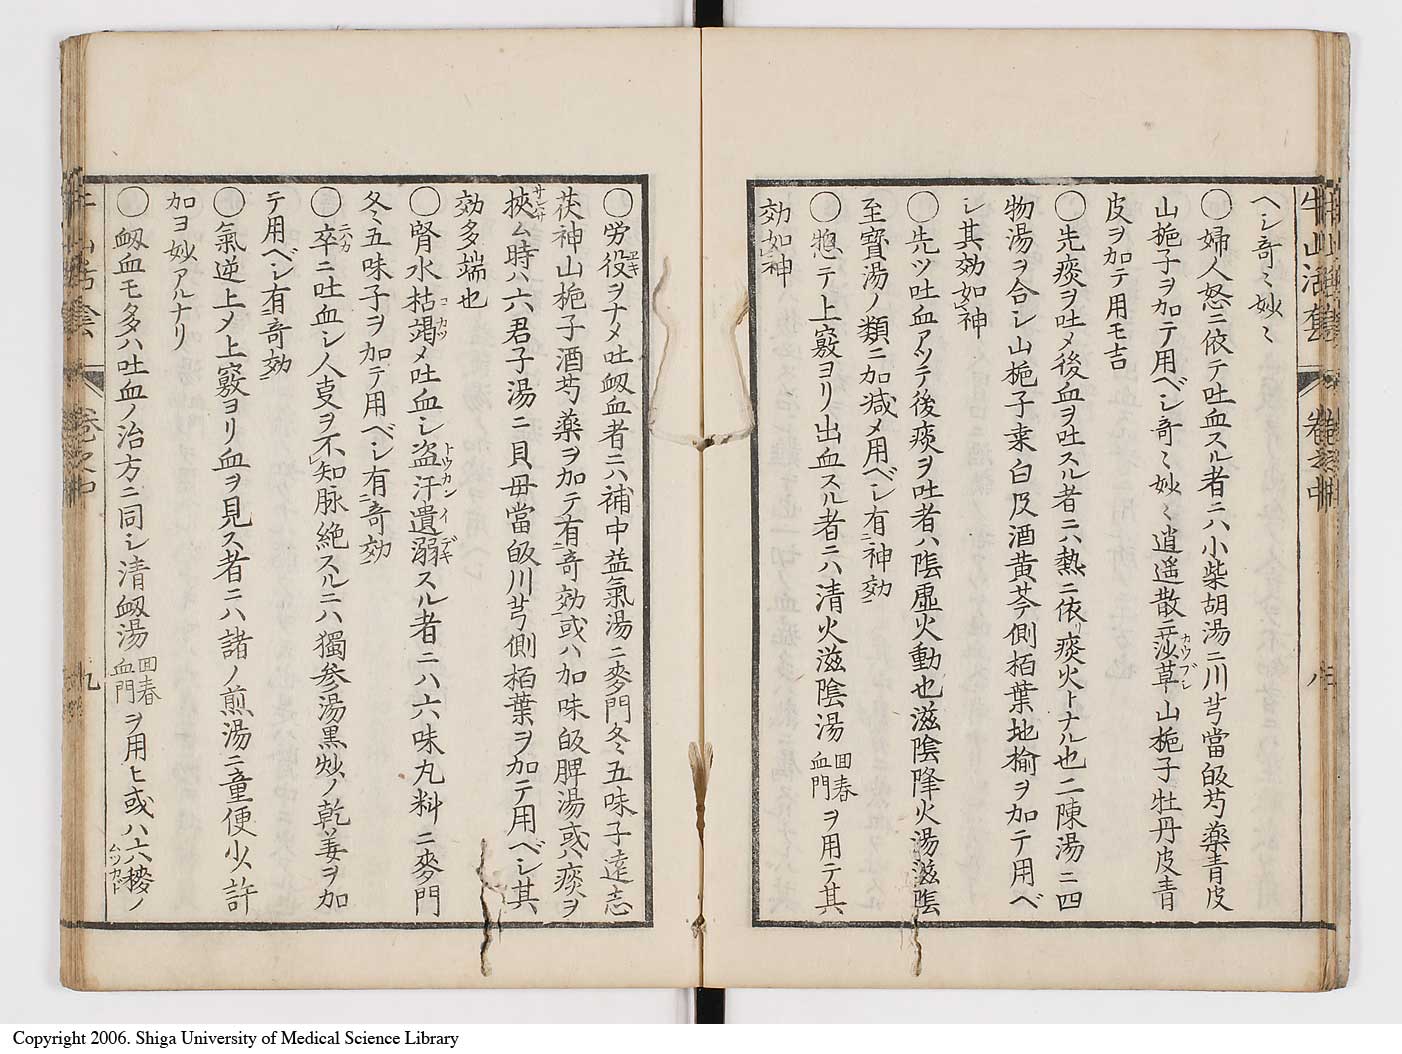 ヘシ奇ミ妙ミ
〇婦人怒ニ依テ吐血スル者ニハ小柴胡湯ニ川芎當皈芍藥青皮
山梔子ヲ加テ用ベシ奇ミ妙ミ逍遥散ニ莎草山梔子牡丹皮青
カウブシ
皮ヲ加テ用モ吉
〇先痰ヲ吐メ後血ヲ吐スル者ニハ熱ニ依リ痰火トナル也二陳湯ニ四
物湯ヲ合シ山梔子棗白及酒黄芩側栢葉地榆ヲ加テ用ベ
シ其効如神
〇先ツ吐血アツテ後痰ヲ吐者ハ陰虚火動也滋陰降火湯滋陰
至寳湯ノ類ニ加減メ用ベシ有神効
〇惣テ上竅ヨリ出血スル者ニハ清火滋陰湯回春血門ヲ用テ其
効如神
牛山活套 卷之中 八
〇労役ヲナメ吐衂血者ニハ補中益氣湯ニ麥門冬ミ五味子遠志
ヱキ
茯神山梔子酒芍藥ヲ加テ有奇効或ハ加味皈脾湯或ハ痰ヲ
挾ム時ハ六君子湯ニ貝母當皈川芎側栢葉ヲ加テ用ベシ其
サシハサ
効多端也
〇腎水枯竭メ吐血シ盗汗遺溺スル者ニハ六味丸料ニ麥門
コカツ トウカンイデキ
冬ミ五味子ヲ加テ用ベシ有奇効
〇卒ニ吐血シ人叓ヲ不知脉絶スルニハ獨参湯黒炒ノ乾姜ヲ加
ニハカ
テ用ベシ有奇効
〇氣逆上メ上竅ヨリ血ヲ見ス者ニハ諸ノ煎湯ニ童便少許
加ヨ妙アルナリ
〇衂血モ多ハ吐血ノ治方ニ同シ清衂湯回春血門ヲ用ヒ或ハ六稜ノ
ムツカド
九
Copyright 2006. Shiga University of Medical Science Library